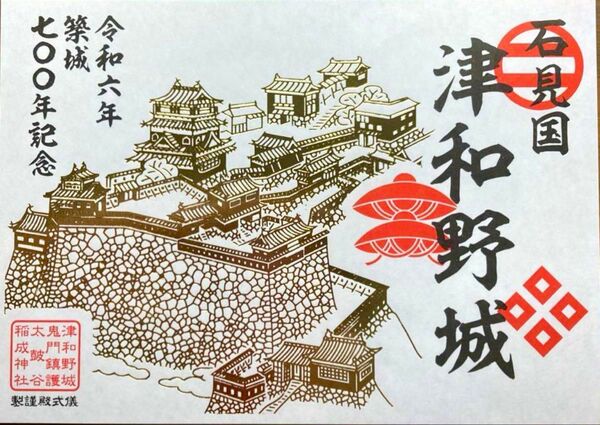 石見国
津和野城
令和六年
築城
七〇〇年記念
津和野城
鬼門鎮護
太皷谷
稲成神社
製謹殿式儀